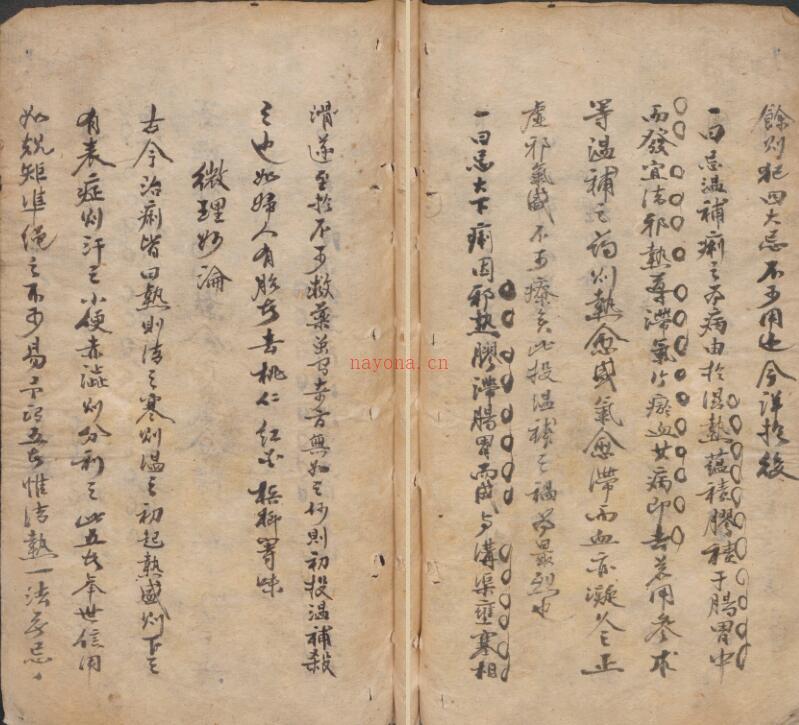 餘則犯四大忌不可用也今詳於後
一曰忌温補痢之为病由於湿熱蘊積膠積于腸胃中
而發宜清邪熱導滯氣行瘀血其病即去若用參朮
等温補之药則熱愈盛氣愈滯而血亦凝久之正
虛邪氣盛不可療矣此投温補之禍为最烈也
一曰忌大下痢因邪熱膠滯腸胃而成与溝渠壅塞相
滑遂至於不可救藥
則初投温補殺
之也如婦人有胎者去桃仁紅花檳榔等味
微理妙論
古今治痢皆曰熱則清之寒則温之初起熱盛則下之
有表症則汗之小便赤澁則分利之此五者举世信用
如規矩準繩之不可易予謂五者惟清熱一法無忌
nayona.cn